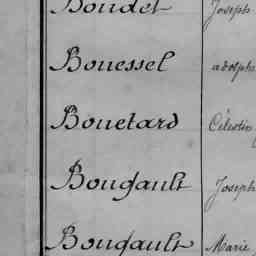 Boudet Joseph
Bouessel adolph
Bouetard Célestin
Bougault Joseph
Bougault Marie